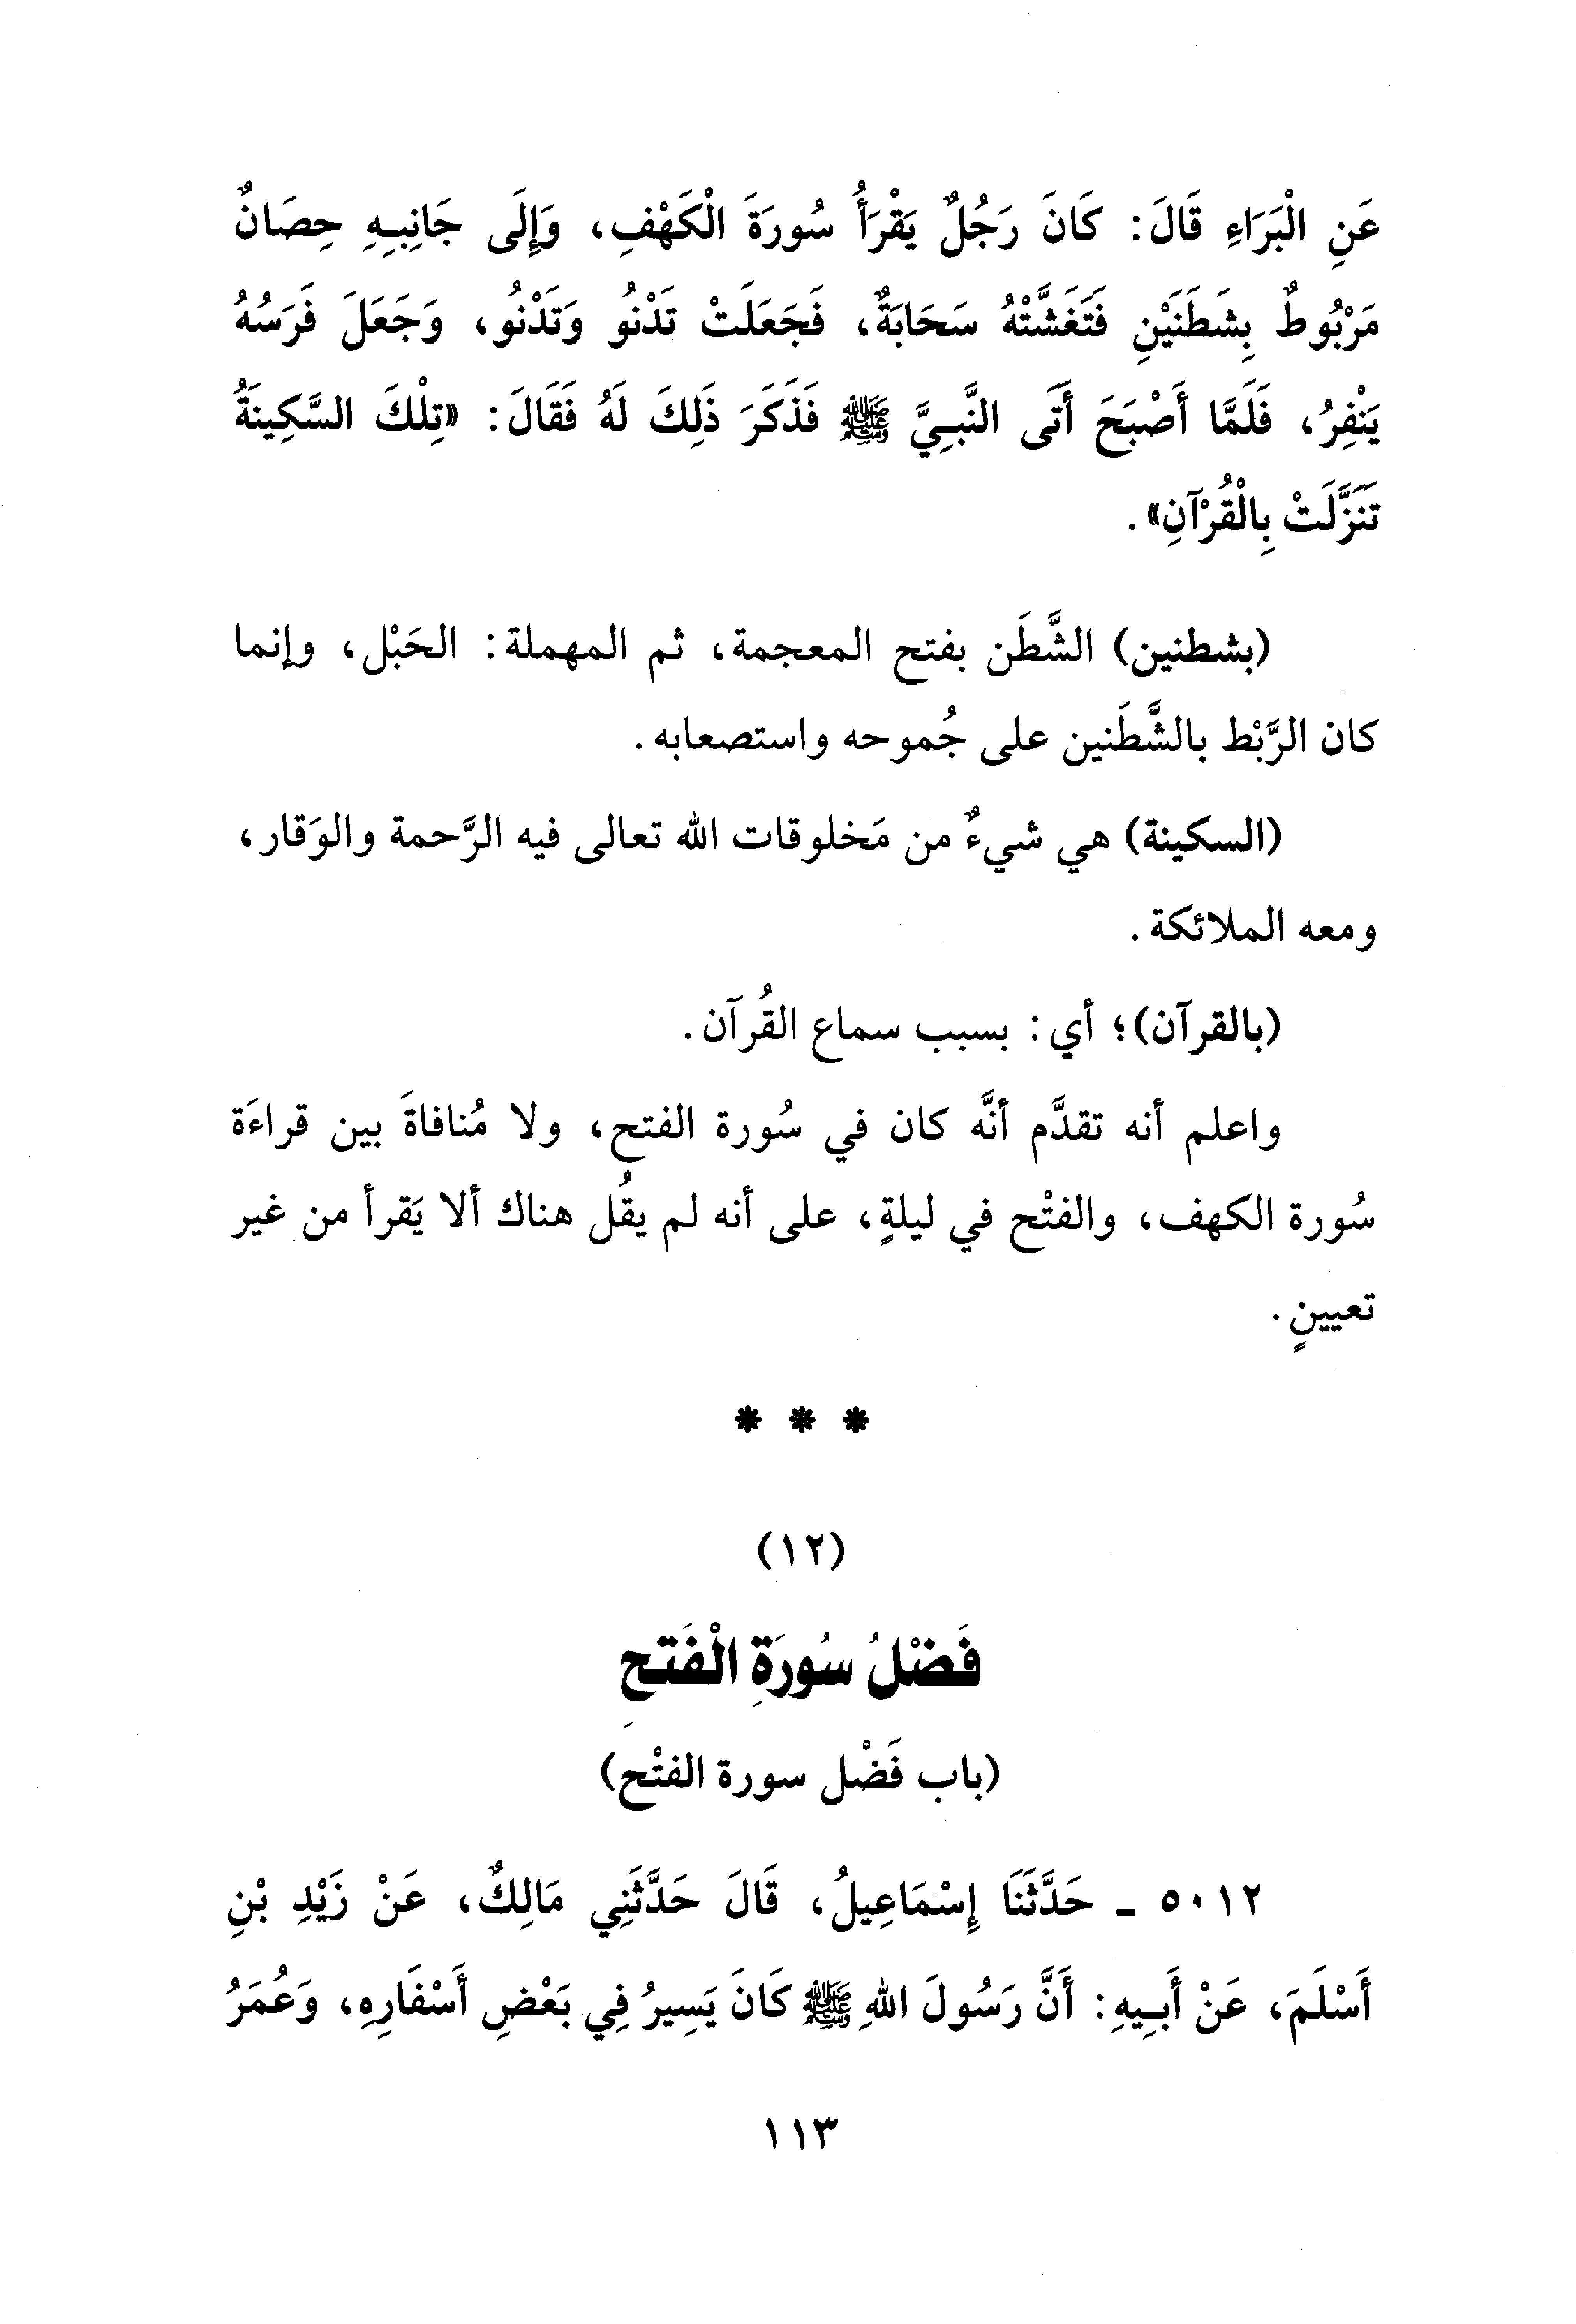 عَنِ الْبَرَاءِ قَالَ: كَانَ رَجُلٌ يَقْرَأُ سُورَةَ الْكَهْفِ، وَإِلَى جَانِبِهِ حِصَانٌ
مَرْبُوطٌ بِشَطَنَيْنِ فَتَغَشَّتْهُ سَحَابَةٌ، فَجَعَلَتْ تَدْنُو وَتَدْنُو، وَجَعَلَ فَرَسُهُ
يَنْفِرُ، فَلَمَّا أَصْبَحَ أَتَى النَّبِيَّ ﷺ فَذَكَرَ ذَلِكَ لَهُ فَقَالَ: «تِلْكَ السَّكِينَةُ
تَنَزَّلَتْ بِالْقُرْآنِ».
(بشطنين) الشَّطَن بفتح المعجمة، ثم المهملة: الحَبْل، وإنما
كان الرَّبْط بالشَّطَنين على جُموحه واستصعابه.
(السكينة) هي شيءٌ من مَخلوقات الله تعالى فيه الرَّحمة والوَقار،
ومعه الملائكة.
(بالقرآن)؛ أي: بسبب سماع القُرآن.
واعلم أنه تقدَّم أنَّه كان في سُورة الفتح، ولا مُنافاةَ بين قراءَة
سُورة الكهف، والفتْح في ليلةٍ، على أنه لم يقُل هناك ألا يَقرأ من غير
تعيينٍ.
* * *
(١٢)
فَضْلُ سُورَةِ الْفَتحِ
(باب فَضْل سورة الفتْح)
٥٠١٢ - حَدَّثَنَا إِسْمَاعِيلُ، قَالَ حَدَّثَنِي مَالِكٌ، عَنْ زَيْدِ بْنِ
أَسْلَمَ، عَنْ أَبِيهِ: أَنَّ رَسُولَ اللهِ ﷺ كَانَ يَسِيرُ فِي بَعْضِ أَسْفَارِهِ، وَعُمَرُ
١١٣